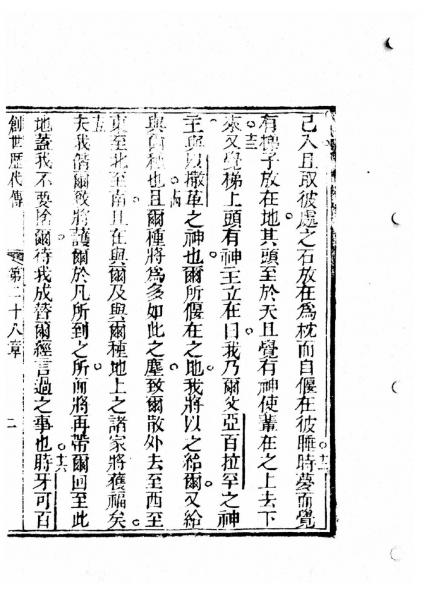 已入且取彼處之石放在為枕而自偃在彼睡時夢而覺
十二
有梯子放在地其頭至於天且覺有神使輩在之上去下
十三
來又覺梯上頭有神主立在曰我乃爾父亞百拉罕之神
主與以撒革之神也爾所偃在之地我將以之給爾又給
十四
與爾種也且爾種將為多如此之塵致爾散外去至西至
東至北至南且在與爾及與爾種地上之諸家將獲福矣
十五
夫我偕爾致將護爾於凡所到之所而將再帶爾回至此
十六
地蓋我不要捨爾待我成替爾經言過之事也時牙可百
創世歷代傳 第二十八章 二